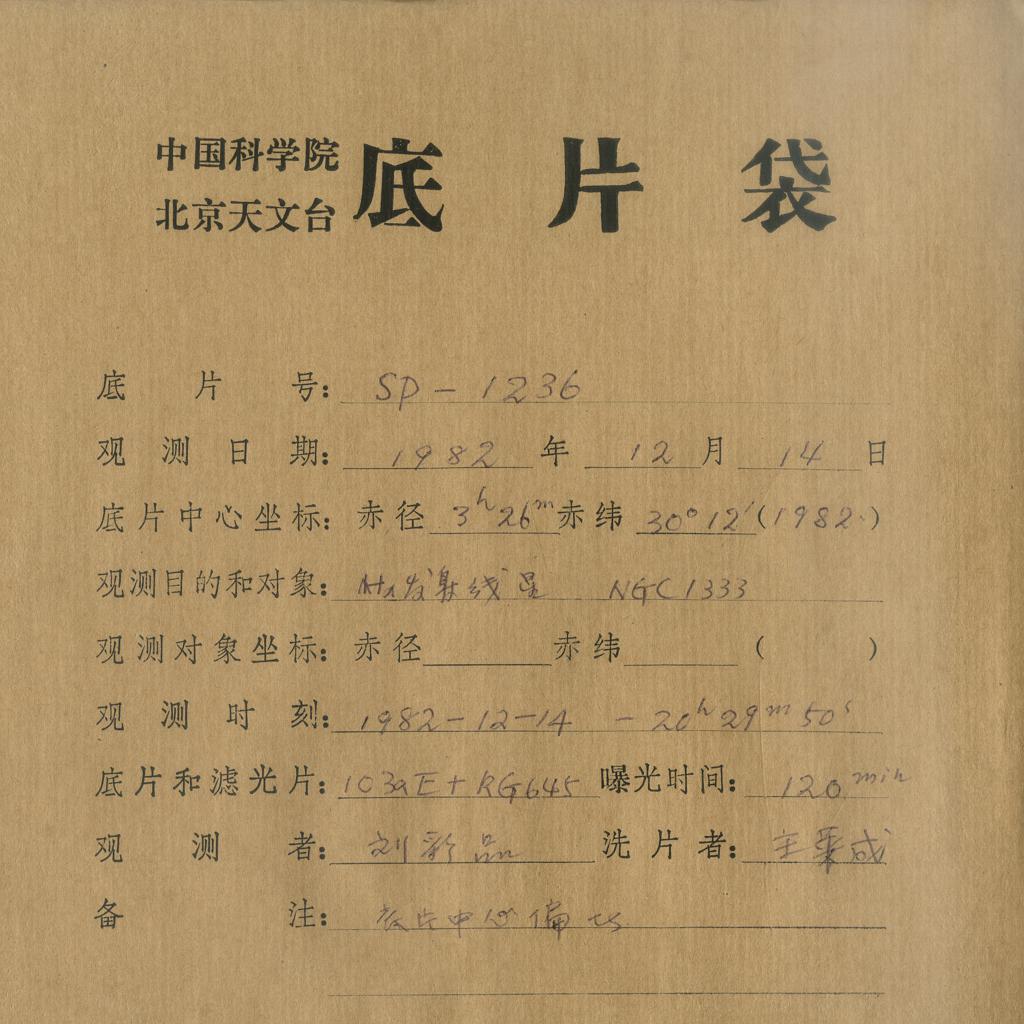 中国科学院
北京天文台
底片袋
底片号：SP-1236
观测日期：1982年12月14日
底片中心坐标：赤径3h26m赤纬30°12′(1982.)
观测目的和对象：Hα发射线星 NGC1333
观测对象坐标：赤径 赤纬 ( )
观测时刻：1982-12-14 -20h29m50s
底片和滤光片：103aE+RG645 曝光时间：120min
观测者：刘彩品 洗片者：成
备注：底片中心偏